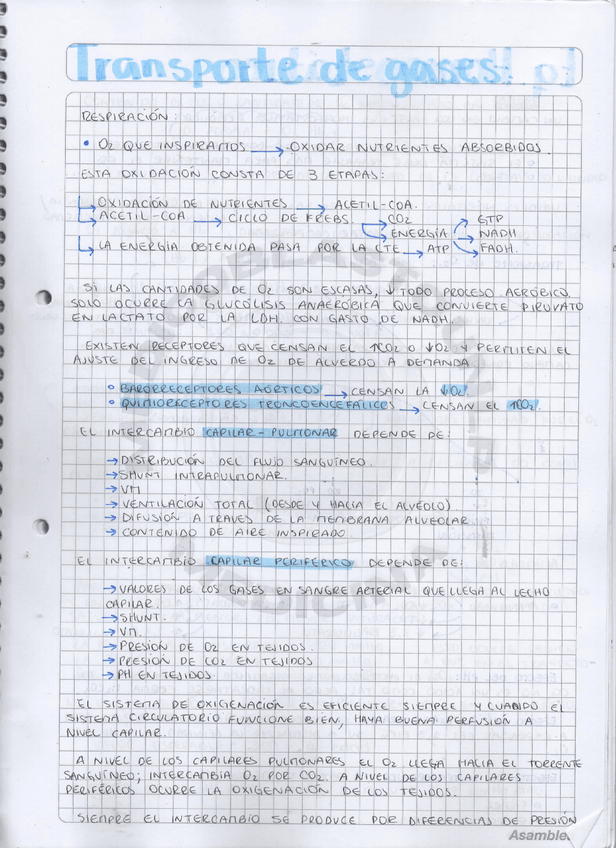 Transporte de gases
RESPIRACIÓN:
• O2 QUE INSPIRAMOS → OXIDAR NUTRIENTES ABSORBIDOS.
ESTA OXIDACIÓN CONSTA DE 3 ETAPAS:
OXIDACIÓN DE NUTRIENTES → ACETIL-COA.
ACETIL-COA → CICLO DE KREBS. → CO2 → GTP
ENERGÍA → NADH
LA ENERGÍA OBTENIDA PASA POR LA CTE → ATP FADH.
SI LAS CANTIDADES DE O2 SON ESCASAS, ↓ TODO PROCESO AERÓBICO.
SOLO OCURRE LA GLUCÓLISIS ANAERÓBICA QUE CONVIERTE PIRUVATO
EN LACTATO POR LA LDH. CON GASTO DE NADH.
EXISTEN RECEPTORES QUE CENSAN EL ↑CO2 O ↓O2 Y PERMITEN EL
AJUSTE DEL INGRESO DE O2 DE ACUERDO A DEMANDA.
• BARORRECEPTORES AÓRTICOS → CENSAN LA ↓O2.
• QUIMIORECEPTORES TRONCOENCEFÁLICOS → CENSAN EL ↑CO2.
EL INTERCAMBIO CAPILAR-PULMONAR DEPENDE DE:
→ DISTRIBUCIÓN DEL FLUJO SANGUÍNEO.
→ SHUNT INTRAPULMONAR.
→ VM
→ VENTILACIÓN TOTAL (DESDE Y HACIA EL ALVÉOLO)
→ DIFUSIÓN A TRAVÉS DE LA MEMBRANA ALVEOLAR
→ CONTENIDO DE AIRE INSPIRADO
EL INTERCAMBIO CAPILAR PERIFÉRICO DEPENDE DE:
→ VALORES DE LOS GASES EN SANGRE ARTERIAL QUE LLEGA AL LECHO
CAPILAR.
→ SHUNT.
→ VM.
→ PRESIÓN DE O2 EN TEJIDOS
→ PRESIÓN DE CO2 EN TEJIDOS
→ PH EN TEJIDOS.
EL SISTEMA DE OXIGENACIÓN ES EFICIENTE SIEMPRE Y CUANDO EL
SISTEMA CIRCULATORIO FUNCIONE BIEN, HAYA BUENA PERFUSIÓN A
NIVEL CAPILAR.
A NIVEL DE LOS CAPILARES PULMONARES EL O2 LLEGA HACIA EL TORRENTE
SANGUÍNEO; INTERCAMBIA O2 POR CO2. A NIVEL DE LOS CAPILARES
PERIFÉRICOS OCURRE LA OXIGENACIÓN DE LOS TEJIDOS.
SIEMPRE EL INTERCAMBIO SE PRODUCE POR DIFERENCIAS DE PRESIÓN